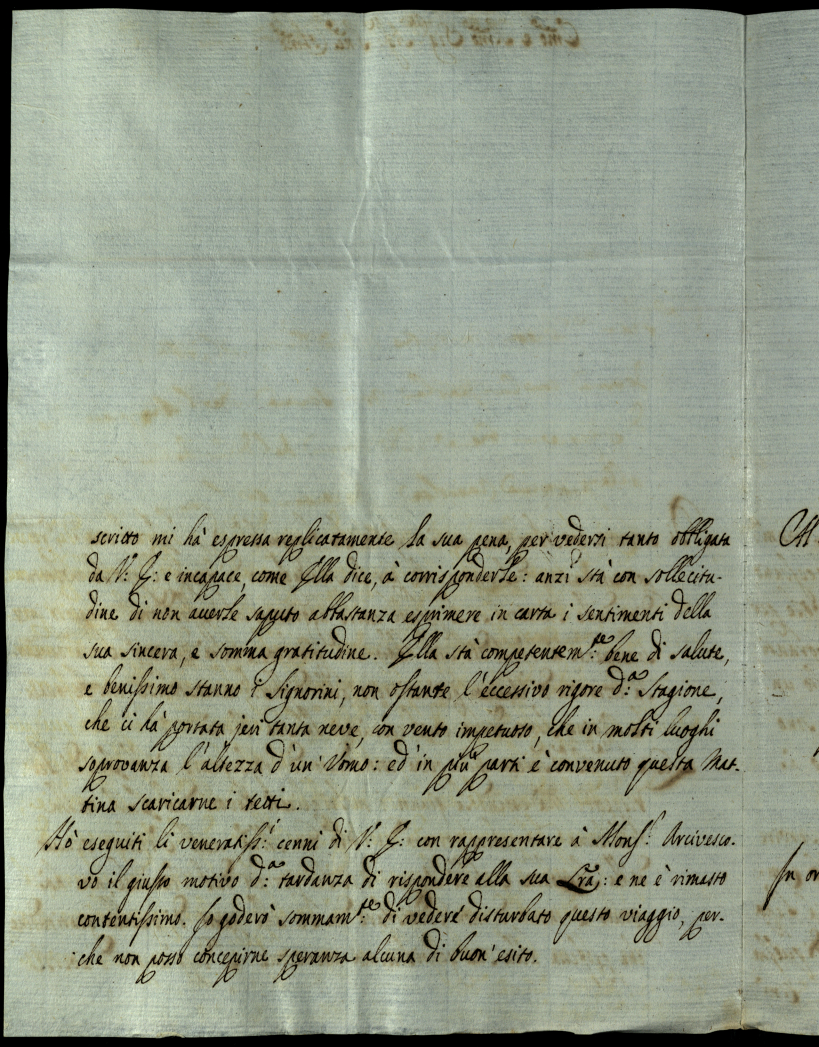 scritto mi hà espressa replicatamente la sua pena, per vedersi tanto obbligata
da V: E: e incapace, come Ella dice, à corrisponderle: anzi stà con sollecitu-
dine di non averle saputo abbastanza esprimere in carta i sentimenti della
sua sincera, e somma gratitudine. Ella stà competentem.te bene di salute,
e benissimo stanno i Signorini, non ostante l'eccessivo rigore d.a Stagione,
che ci hà portata jeri tanta neve, con vento impetuoso, che in molti luoghi
sopravanza l'altezza d'un' Vomo: ed' in più parti è convenuto questa Mat-
tina scaricarne i tetti.
Hò eseguiti li veneratiss.i cenni di V: E: con rappresentare à Mons.r Arcivesco-
vo il giusto motivo d.a tardanza di rispondere alla sua Lra: e ne è rimasto
contentissimo. Io goderò sommam.te di vedere disturbato questo viaggio, per-
che non posso concepirne speranza alcuna di buon' esito.